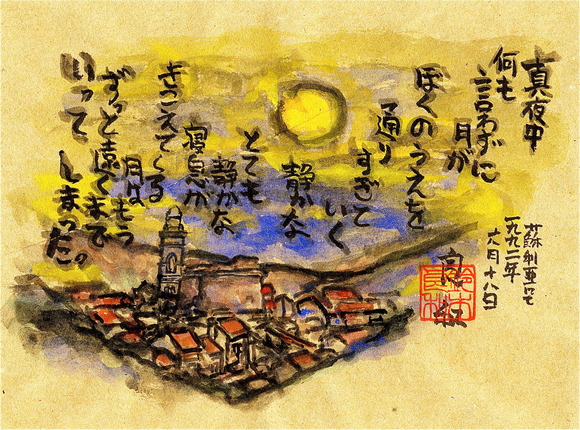 真夜中
何も
言わずに
月が
ぼくのうえを
通り
すぎて
いく
静かな
とても
静かな
寝息が
きこえてくる
月はもう
ずっと遠くまで
いってしまった。
にて
一九九二年
六月十八日